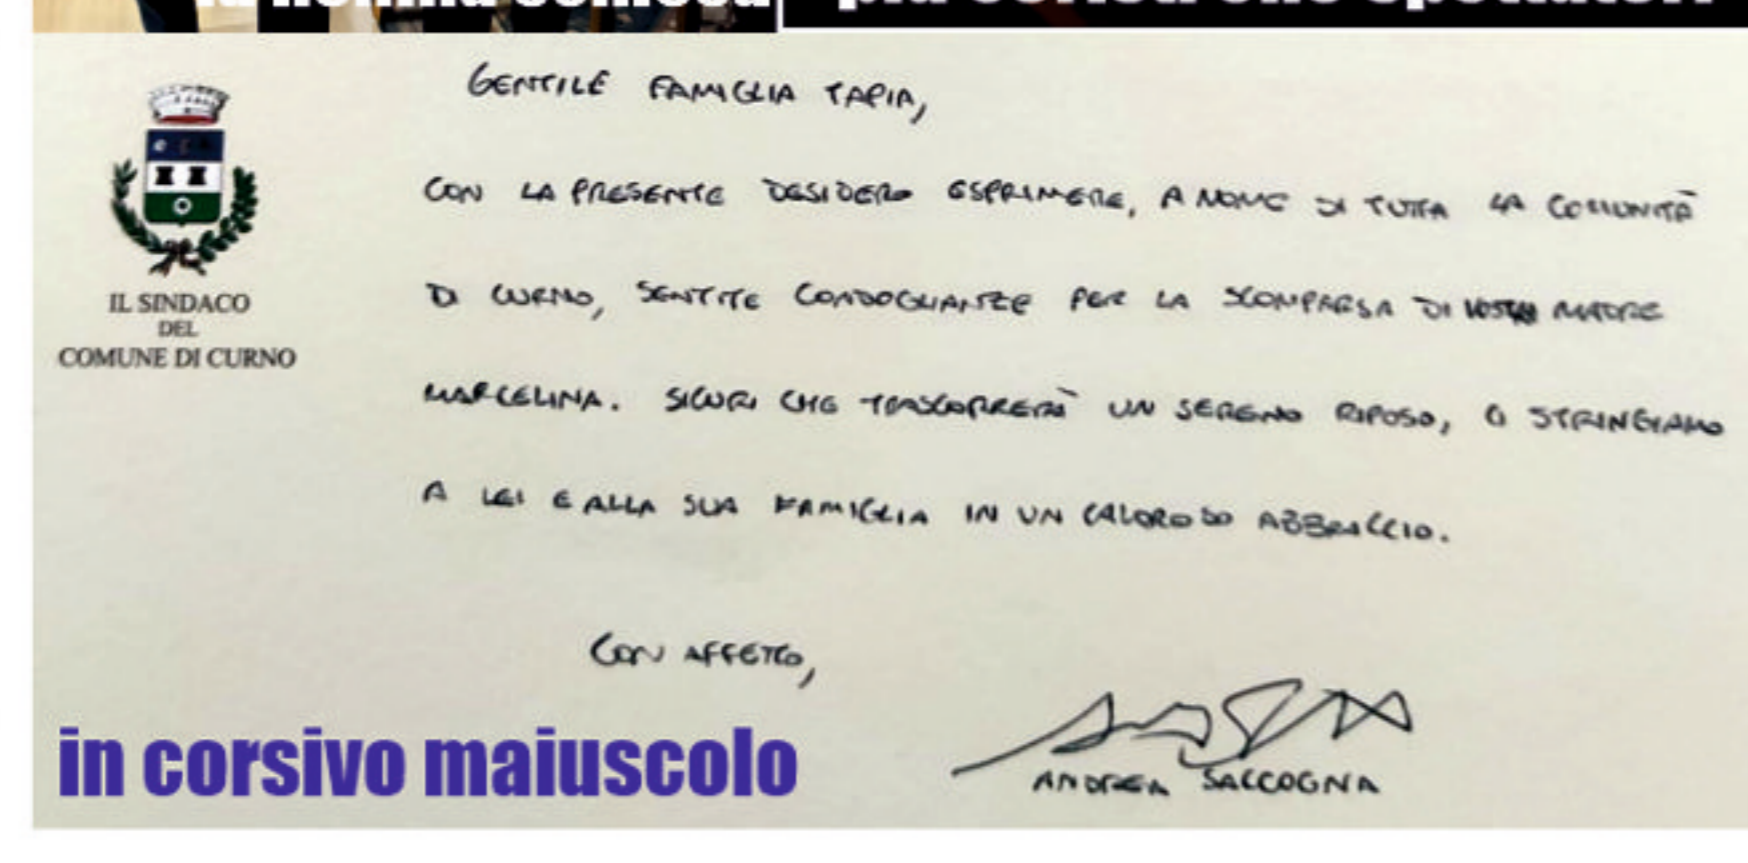 più coristi che spettatori
IL SINDACO
DEL
COMUNE DI CURNO
GENTILE FAMIGLIA TAPIA,
CON LA PRESENTE DESIDERO ESPRIMERE, A NOME DI TUTTA LA COMUNITÀ
DI CURNO, SENTITE CONDOGLIANZE PER LA SCOMPARSA DI VOSTRA MADRE
MARCELINA. SICURI CHE TRASCORRERÀ UN SERENO RIPOSO, CI STRINGIAMO
A LEI E ALLA SUA FAMIGLIA IN UN CALOROSO ABBRACCIO.
CON AFFETTO,
in corsivo maiuscolo
ANDREA SACCOGNA